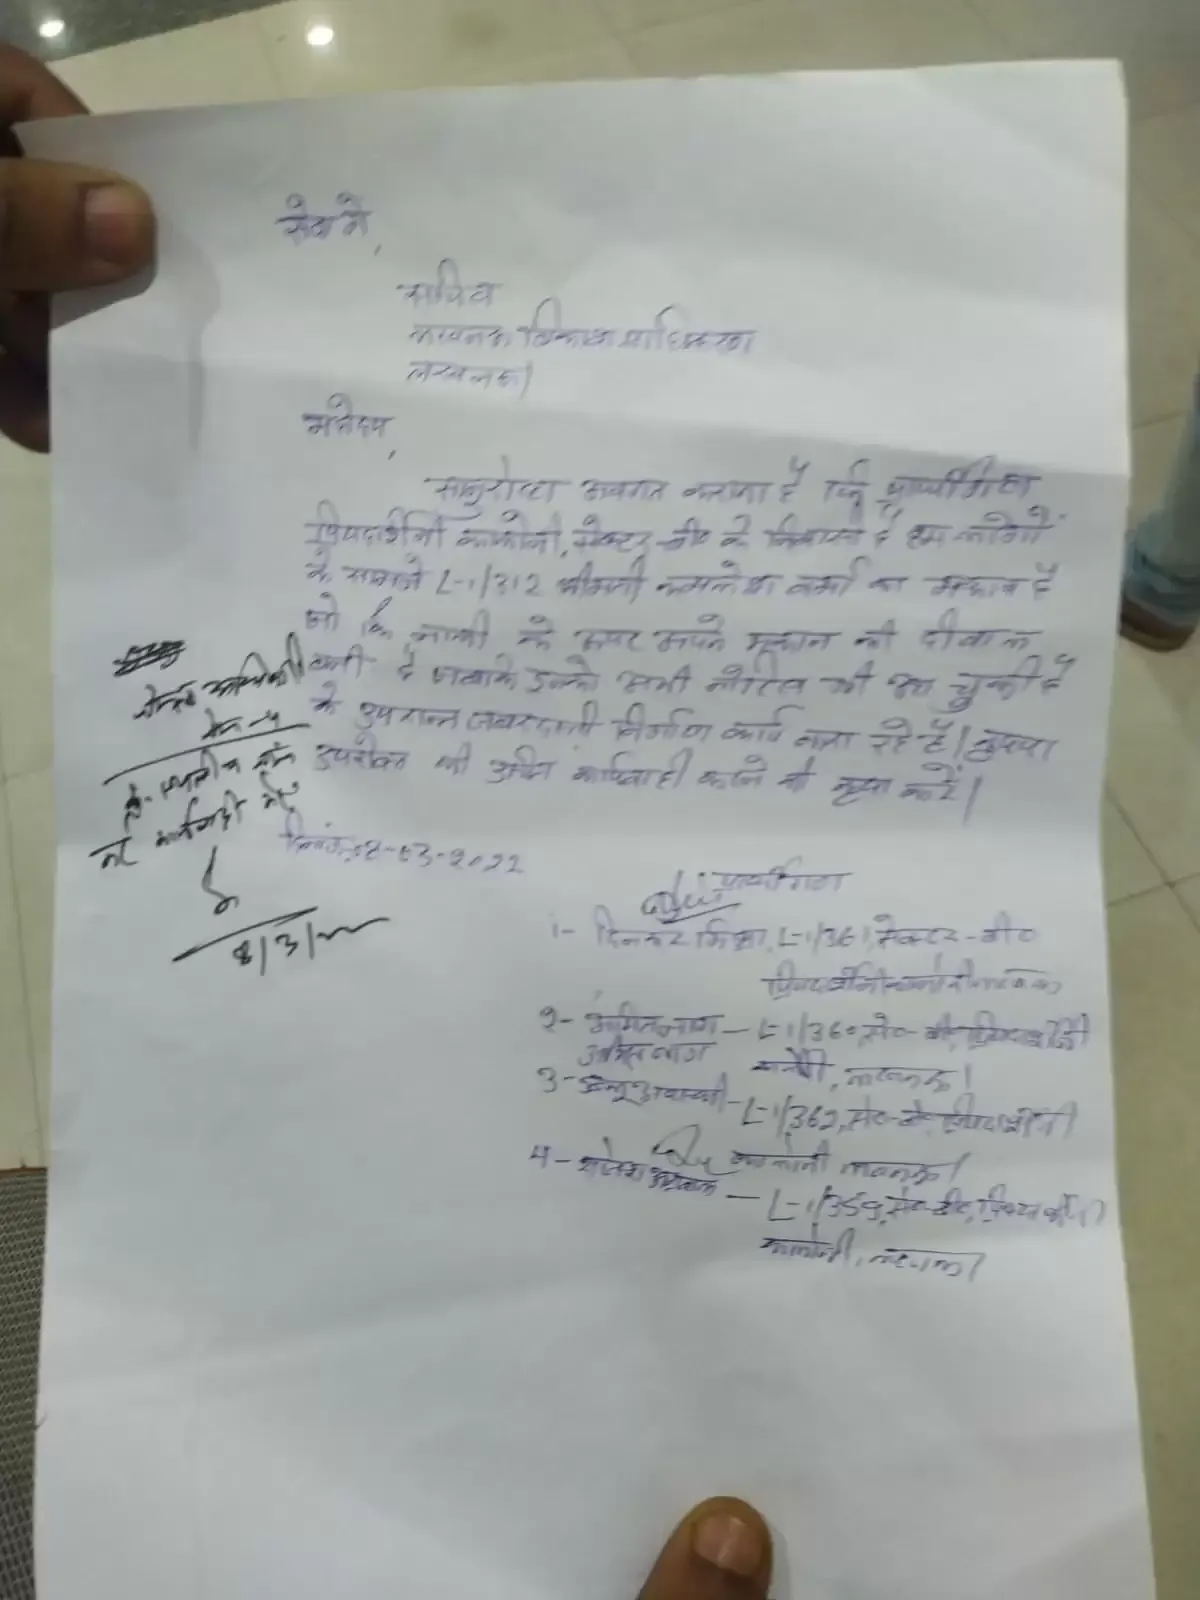 सेवा में,
सचिव
लखनऊ विकास प्राधिकरण
लखनऊ।
महोदय,
सानुरोध अवगत कराना है कि प्रार्थीगण
प्रियदर्शिनी कालोनी, सेक्टर-बी० के निवासी है हम लोगों
के सामने L-1/312 श्रीमती कमलेश वर्मा का मकान है
जो कि नाली के ऊपर अपने मकान की दीवाल
बनी है जबकि इनको सभी नोटिस दी जा चुकी है
के उपरान्त जबरदस्ती निर्माण कार्य करा रहे है। कृपया
उपरोक्त की उचित कार्यवाही करने की कृपा करें।
जोन-५
कार्यवाही करें
8/3/
दिनांक 08-03-2022
प्रार्थीगण
1- दिनकर मिश्रा, L-1/361, सेक्टर-बी०
प्रियदर्शिनी कालोनी लखनऊ
2- अमित नाग — L-1/360, से०-बी०, प्रियदर्शिनी
कालोनी, लखनऊ।
3- इन्दू अवस्थी — L-1/362, से०-बी०, प्रियदर्शिनी
कालोनी लखनऊ।
4- — L-1/359, से०-बी०, प्रियदर्शिनी
कालोनी, लखनऊ।